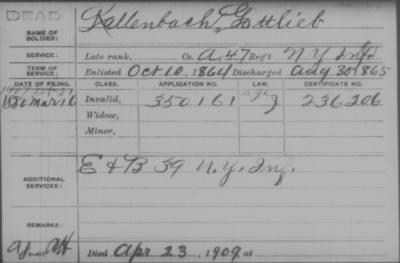 DEAD
NAME OF SOLDIER: Kallenbach, Gottlieb
SERVICE: Late rank, Co. A, 47 Reg't N Y Inf
TERM OF SERVICE: Enlisted Oct 10, 1864 Discharged Aug 30 1865
DATE OF FILING. CLASS. APPLICATION NO. LAW. CERTIFICATE NO.
Mar 10 Invalid, 350161 236206
Widow,
Minor,
ADDITIONAL SERVICES: E & B 59 N.Y. Inf.
REMARKS:
Died Apr 23, 1909, at